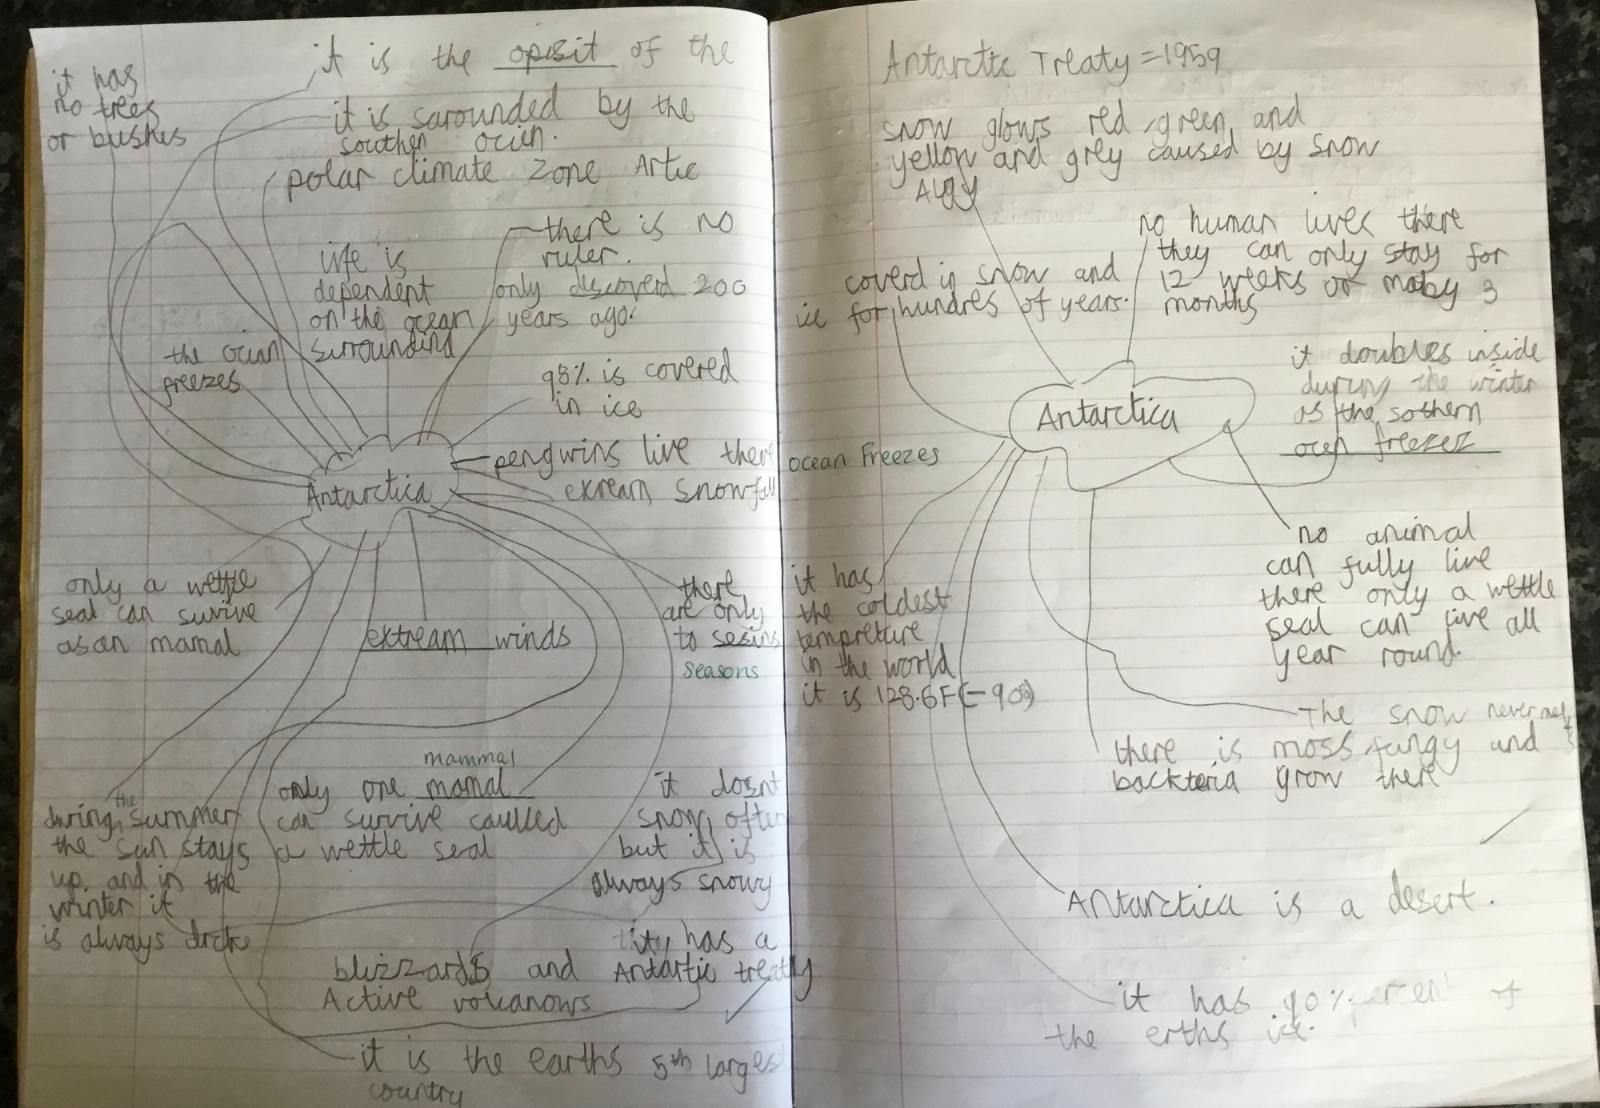 it has
no trees
or bushes
it is the opisit of the
it is sarounded by the
southen ocien.
polar climate zone Artic
there is no
ruler.
life is
dependent
on the ocean
surrounding
only discoverd 200
years ago.
the ocian
freezes
98% is covered
in ice
pengwins live there
exream snowfall
Antarctica
only a wettle
seal can survive
as an mamal
extream winds
there
are only
to sesins
seasons
mammal
only one mamal
can survive caulled
a wettle seal
the
during summer
the sun stays
up and in the
winter it
is always drck
it dosnt
snow often
but it is
always snowy
blizzards and
Active volcanows
ity has a
Antartic treaty
it is the earths 5th larges
country
Antarctic Treaty = 1959
snow glows red, green and
yellow and grey caused by snow
Algy
no human lives there
they can only stay for
12 weeks or maby 3
months
coverd in snow and
ice for hundres of years.
it doubles inside
during the winter
as the sothern
ocen freezez
Antarctica
ocean Freezes
no animal
can fully live
there only a wettle
seal can live all
year round.
it has
the coldest
tempreture
in the world
it is 128.6F(-90°)
The snow never melts
there is moss, fungy and
backteria grow there
Antarctica is a desert.
it has 90% of
the erths ice.